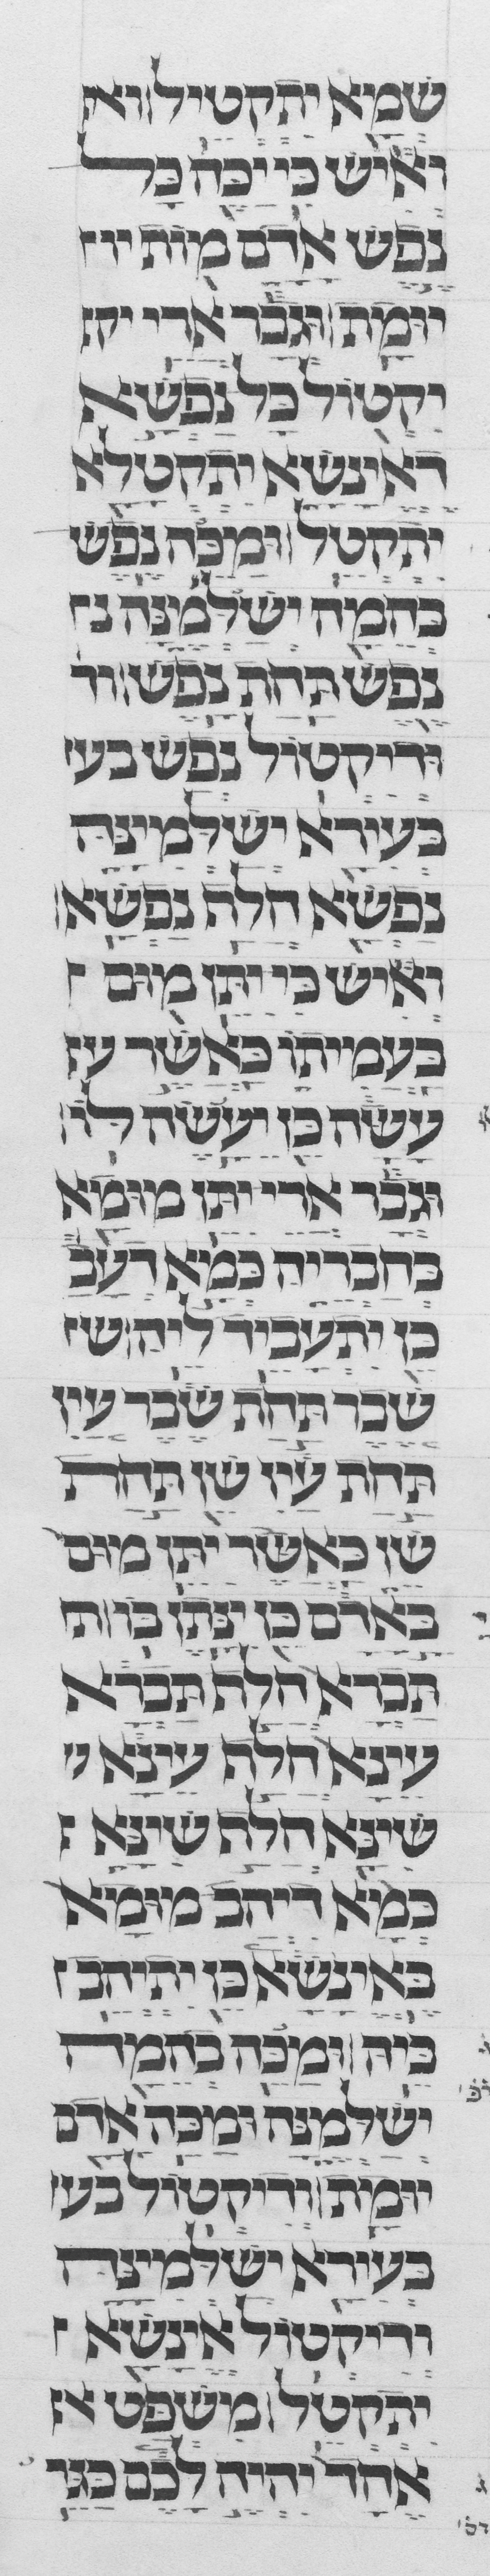 שמא יתקטיל וא
ואיש כי יכה כל
נפש אדם מות יו
יומת וגבר ארי יק
יקטול כל נפשא
דאינשא יתקטלא
יתקטל ומכה נפש
בהמה ישלמנה נ
נפש תחת נפש וד
ודיקטול נפש בעי
בעירא ישלמינה
נפשא חלף נפשא
ואיש כי יתן מום
בעמיתו כאשר ע
עשה כן יעשה לו
וגבר ארי יתן מומא
בחבריה כמא דעב
כן יתעביד ליה ש
שבר תחת שבר עין
תחת עין שן תחת
שן כאשר יתן מום
באדם כן ינתן בו ת
תברא חלף תברא
עינא חלף עינא ש
שינא חלף שינא
כמא דיהב מומא
באינשא כן יתיהב
ביה ומכה בהמה
ישלמנה ומכה אדם
יומת ודיקטול בעי
בעירא ישלמינה
ודיקטול אינשא
יתקטל משפט א
אחד יהיה לכם כגר